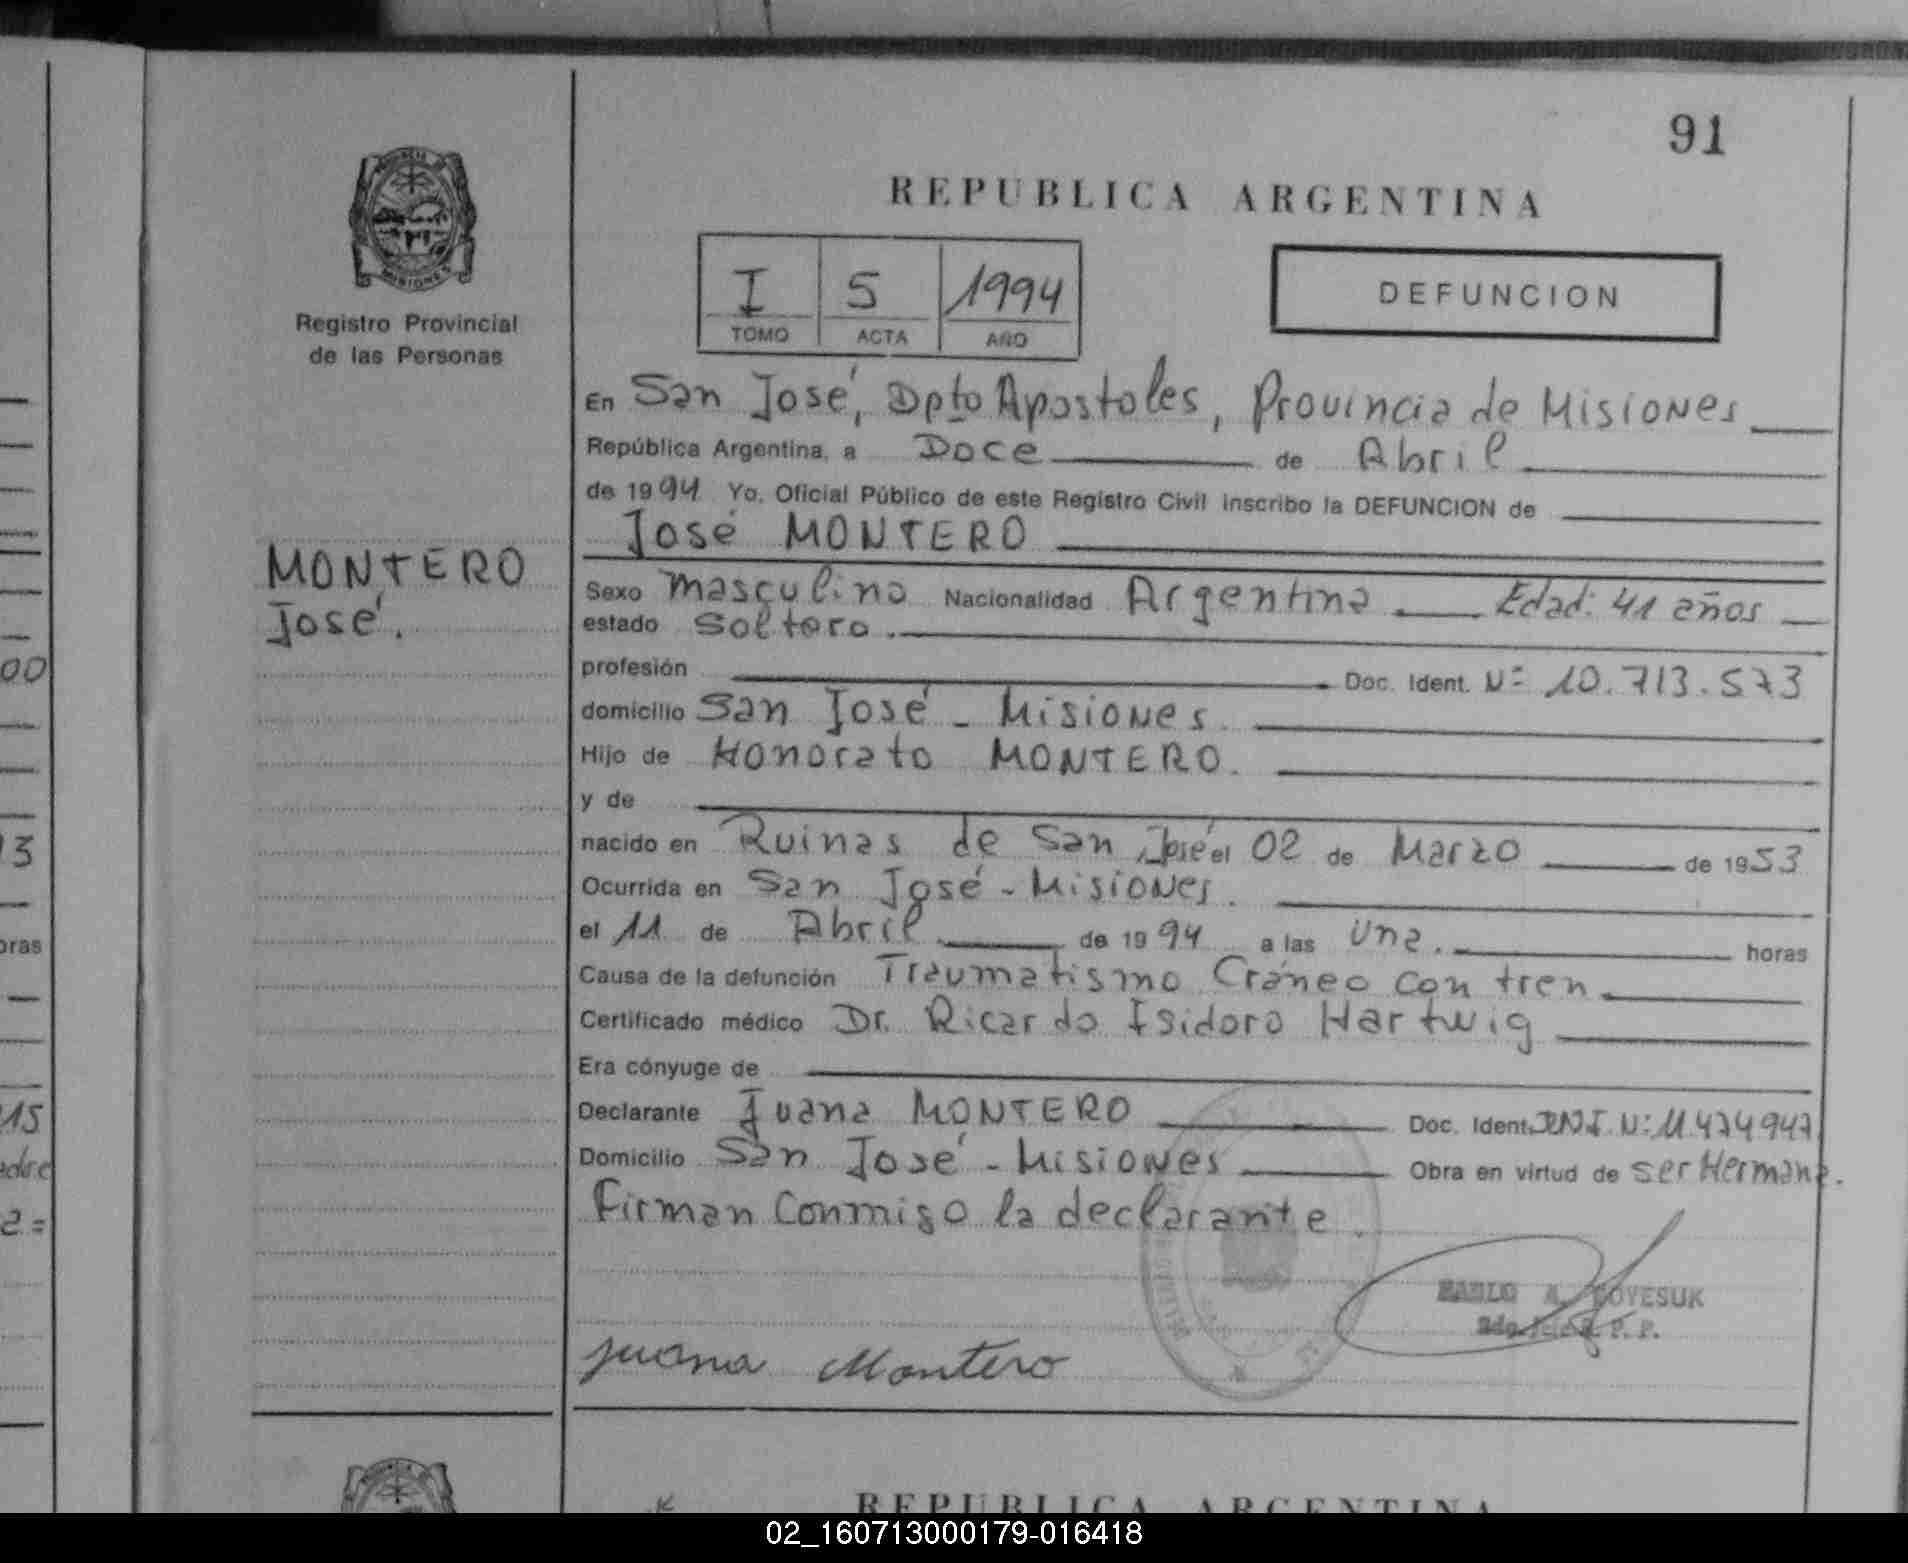 91
REPUBLICA ARGENTINA
PROVINCIA DE
MISIONES
Registro Provincial
de las Personas
I 5 1994
TOMO ACTA AÑO
DEFUNCION
En San José, Dpto Apostoles, Provincia de Misiones
República Argentina, a Doce de Abril
de 1994 Yo, Oficial Público de este Registro Civil inscribo la DEFUNCION de
José MONTERO
MONTERO
José.
Sexo masculino Nacionalidad Argentina Edad: 41 años
estado Soltero.
profesión Doc. Ident. Nº 10.713.573
domicilio San José - Misiones.
Hijo de Honorato MONTERO.
y de
nacido en Ruinas de San José el 02 de Marzo de 1953
Ocurrida en San José - Misiones.
el 11 de Abril de 1994 a las Una. horas
Causa de la defunción Traumatismo Cráneo con tren
Certificado médico Dr. Ricardo Isidoro Hartwig
Era cónyuge de
Declarante Juana MONTERO Doc. Ident. DNI. N: 11.474947
Domicilio San José - Misiones Obra en virtud de ser Hermana.
Firman Conmigo la declarante.
PABLO A. 
P. P.
Juana Montero
00
13
oras
15
adre
a =
REPUBLICA ARGENTINA
02_160713000179-016418